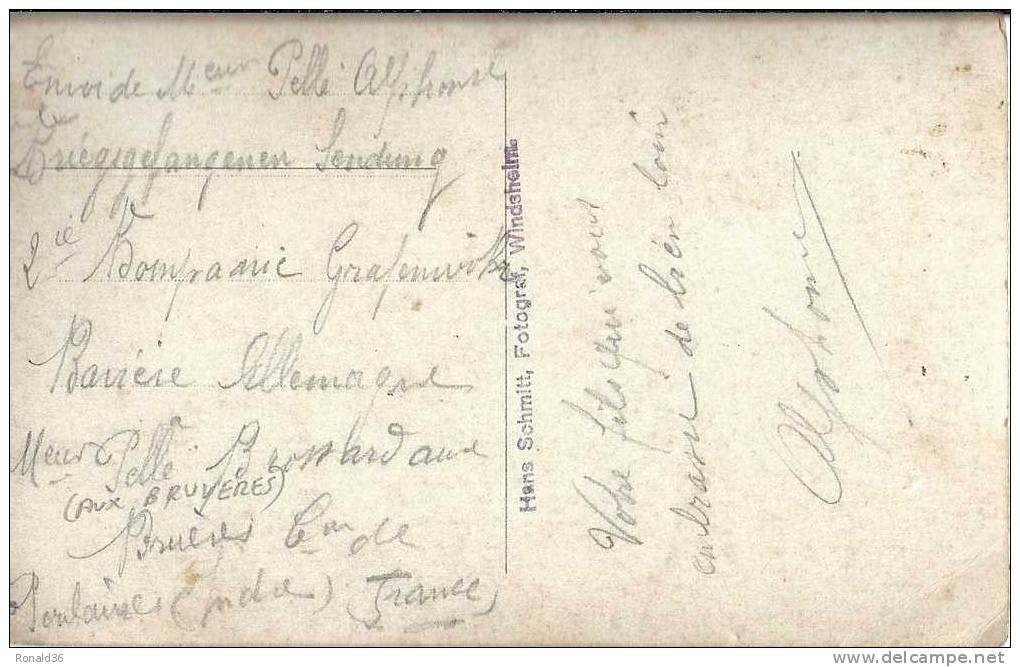 Envoi de Meur Pellé Alphonse
Kriégsgefangenen Sendung
2ie Kompranie Grafenwöhr
Bavière Allemagne
Meur Pellé Brossard aux
(AUX BRUYERES)
Bruères Con de
Poulaines (Indre) France
Hans Schmitt, Fotograf, Windsheim.
Votre fils qui vous
embrasse de bien loin
Alphonse
Ronald36
www.delcampe.net